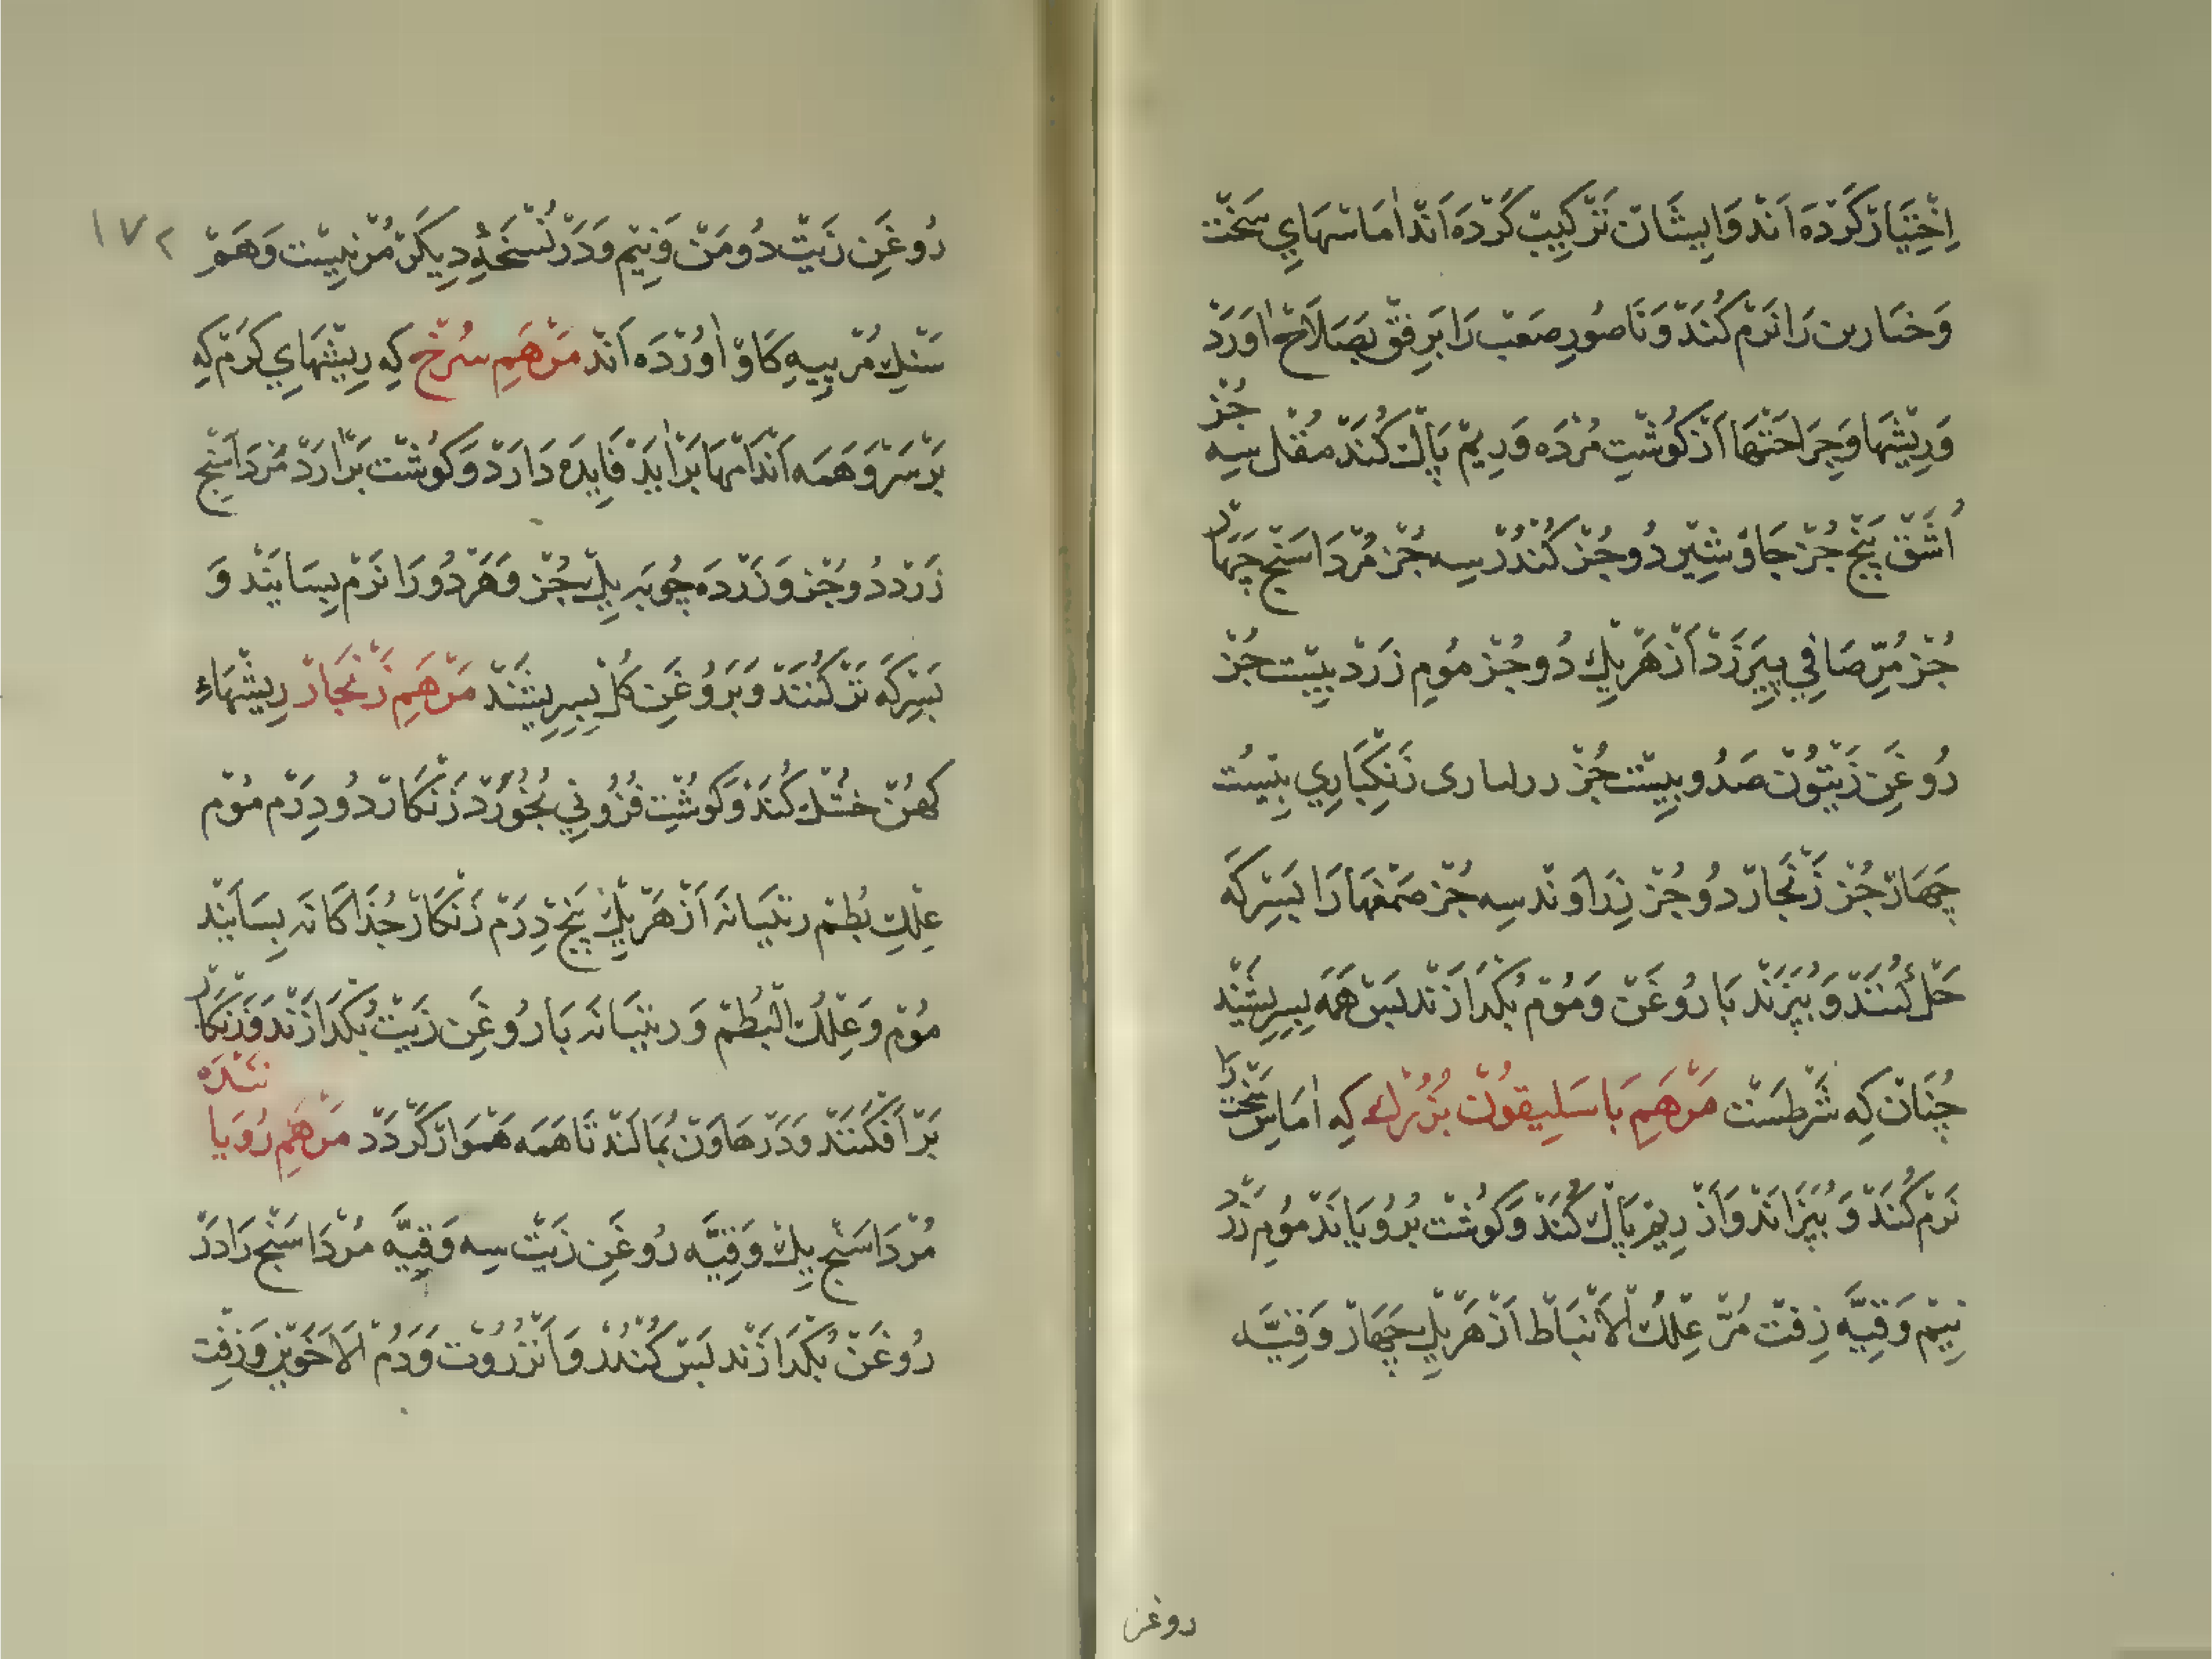 اِخْتِیَارْ کَرْدَه اَنْد وَایشَانْ تَرْکِیبْ کَرْدَه اَنْد اٰمَاسْهَایِ سَخْت
وَخنَارین رَا نَرْم کُنَدْ وَنَاصُورِ صَعْب رَا بَرِفْق بِصَلَاحْ اٰوَرَدْ
وَرِیْشْهَا وَجِرَاحَتْهَا اَزْ کُوشْتِ مُرْدَه وَرِیمْ پَاكْ کُنَدْ مُقْل سِه جُزْ
اُشَّقْ پَنْج جُزْ جَاوْشِیر دُو جُزْ کُنْدُرْ سِه جُزْ مُرْدَاسَنْج چَهَارْ
جُزْ مُرِّ صَافِي بِیرَزَدْ اَزْ هَرْ یِكْ دُو جُزْ مُومِ زَرْد بِیسْت جُز
رُوغَنِ زَیْتُونْ صَدُ و بِیسْت جُزْ زَنکِبَارِي بِیسْت
چَهَارْ جُزْ زَنْجَارْ دُو جُزْ زِرَاوَنْد سِه جُزْ صَمْغهَا رَا بَسِرْکَه
حَلْ کُنَنْدْ وَبُپَزَنْد بَا رُوغَنْ وَمُومْ بُکدَازَنْد پَسْ هَمَه بِسِرِیشَنْد
چُنَانْ کِه شَرْطَسْت مَرْهَمِ بَاسَلِیقُونْ بُزُرْكْ کِه اٰمَاسِ سَخْت رَا
نَرْم کُنَدْ وَبُپَزَانَدْ وَاَزْ رِیمْ پَاكْ کُنَدْ وَکُوشْت بُرُویَانَدْ مُومِ زَرْدْ
نِیْم وَقِیَّه زِفْت مُرّ عِلْكُ الْاَنْبَاط اَزْ هَرْ یِكْ چَهَارْ وَقِیَّه
روغن
۱۷۲
رُوغَنِ زَیْتْ دُو مَنْ وَنِیْم وَدَرْ نُسْخَهٔ دِیکَرْ مُرّ نِیسْت وَهَمْ
سَنْكِ مُرّ پِیهِ کَاوْ اٰوُرْدَه اَنْدْ مَرْهَمِ سُرْخ کِه رِیْشْهَايِ کَرْم کِه
بَرْ سَرْ وَهَمَه اَنْدَامْهَا بَرْاٰیَدْ فَایِدَه دَارَدْ وَکُوشْت بَرْاٰرَدْ مُرْدَاسَنْج
زَرْد دُو جُزْ وَزَرْدَه چُوبَه یِكْ جُزْ وَهَرْ دُو رَا نَرْم بِسَایَنْد وَ
بَسِرْکَه تَرْ کُنَنْد وَبَرَوُغَنِ کُلْ بِسِرِیشَنْدْ مَرْهَمِ زَنْجَارْ رِیشْهَاءِ
کهُنْ خشْك کُنَدْ وَکوشْتِ فُزُونِي بُخُورَدْ زَنْکَارْ دُو دِرَم مُوم
عِلْكِ بُطْم رتبَیانَه اَزْ هَرْ یِكْ پَنْج دِرَم زَنْکَارْ جُدَاکَانَه بِسَایَنْد
مُوم وَعِلْكُ الْبُطْم وَرتبَیانَه بَا رُوغَنِ زَیْتْ بُکدَازَنْد وَزَنْکَارْ
بَرْاَفْکَنَنْد وَدَرْ هَاوَنْ بُمَالَنْد تَا هَمَه هَمْوَارْ کَرْدَدْ مَرْهَمِ رُویَا نَنْدَه
مُرْدَاسَنْج یِكْ وَقِیَّه رُوغَنِ زَیْتْ سِه وَقِیَّه مُرْدَاسَنْج رَا دَرْ
رُوغَنْ بُکدَازَنْد پَسْ کُنْدُرْ وَاَنْزُرُوتْ وَدَمُ الْاَخَوَیْنِ وَزِفْت